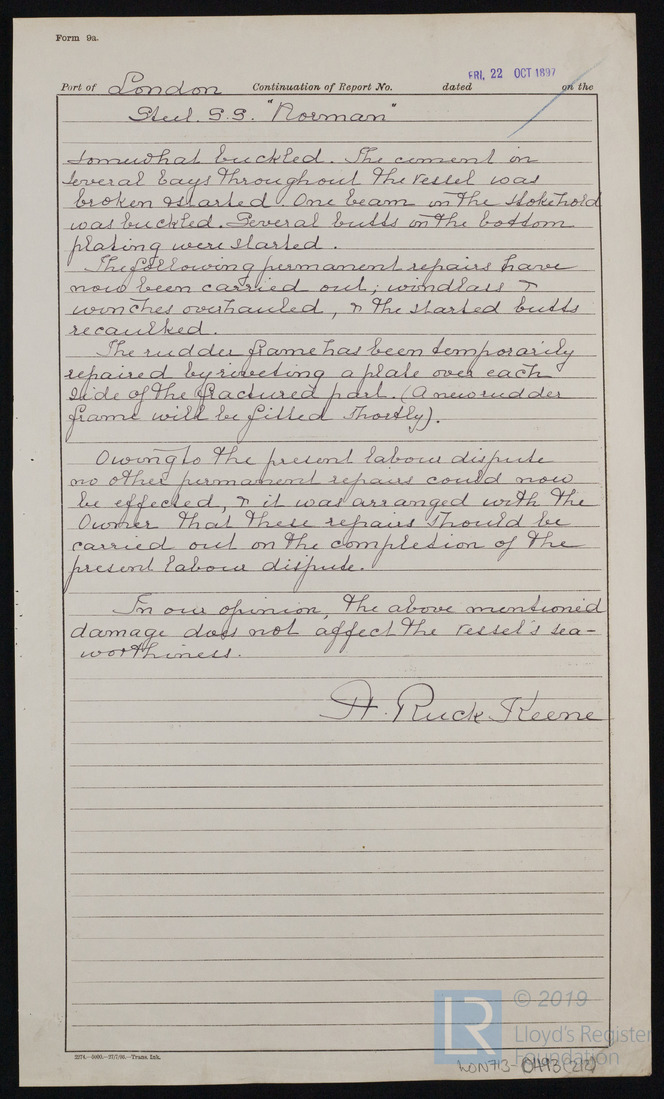 Form 9a.
FRI, 22 OCT 1897
Port of London Continuation of Report No. dated on the
Steel. S.S. "Norman"
somewhat buckled. The cement in
several bays throughout the vessel was
broken & started. One beam in the stokehold
was buckled. Several butts in the bottom
plating were started.
The following permanent repairs have
now been carried out; windlass &
winches overhauled, & the started butts
recaulked.
The rudder frame has been temporarily
repaired by riveting a plate over each
side of the fractured part. (A new rudder
frame will be fitted shortly).
Owing to the present labour dispute
no other permanent repairs could now
be effected, & it was arranged with the
Owner that these repairs should be
carried out on the completion of the
present labour dispute.
In our opinion, the above mentioned
damage does not affect the vessel's sea-
worthiness.
H. Ruck Keene
LR © 2019
Lloyd's Register
Foundation
Trans. Ink.
LON713-0493(212)